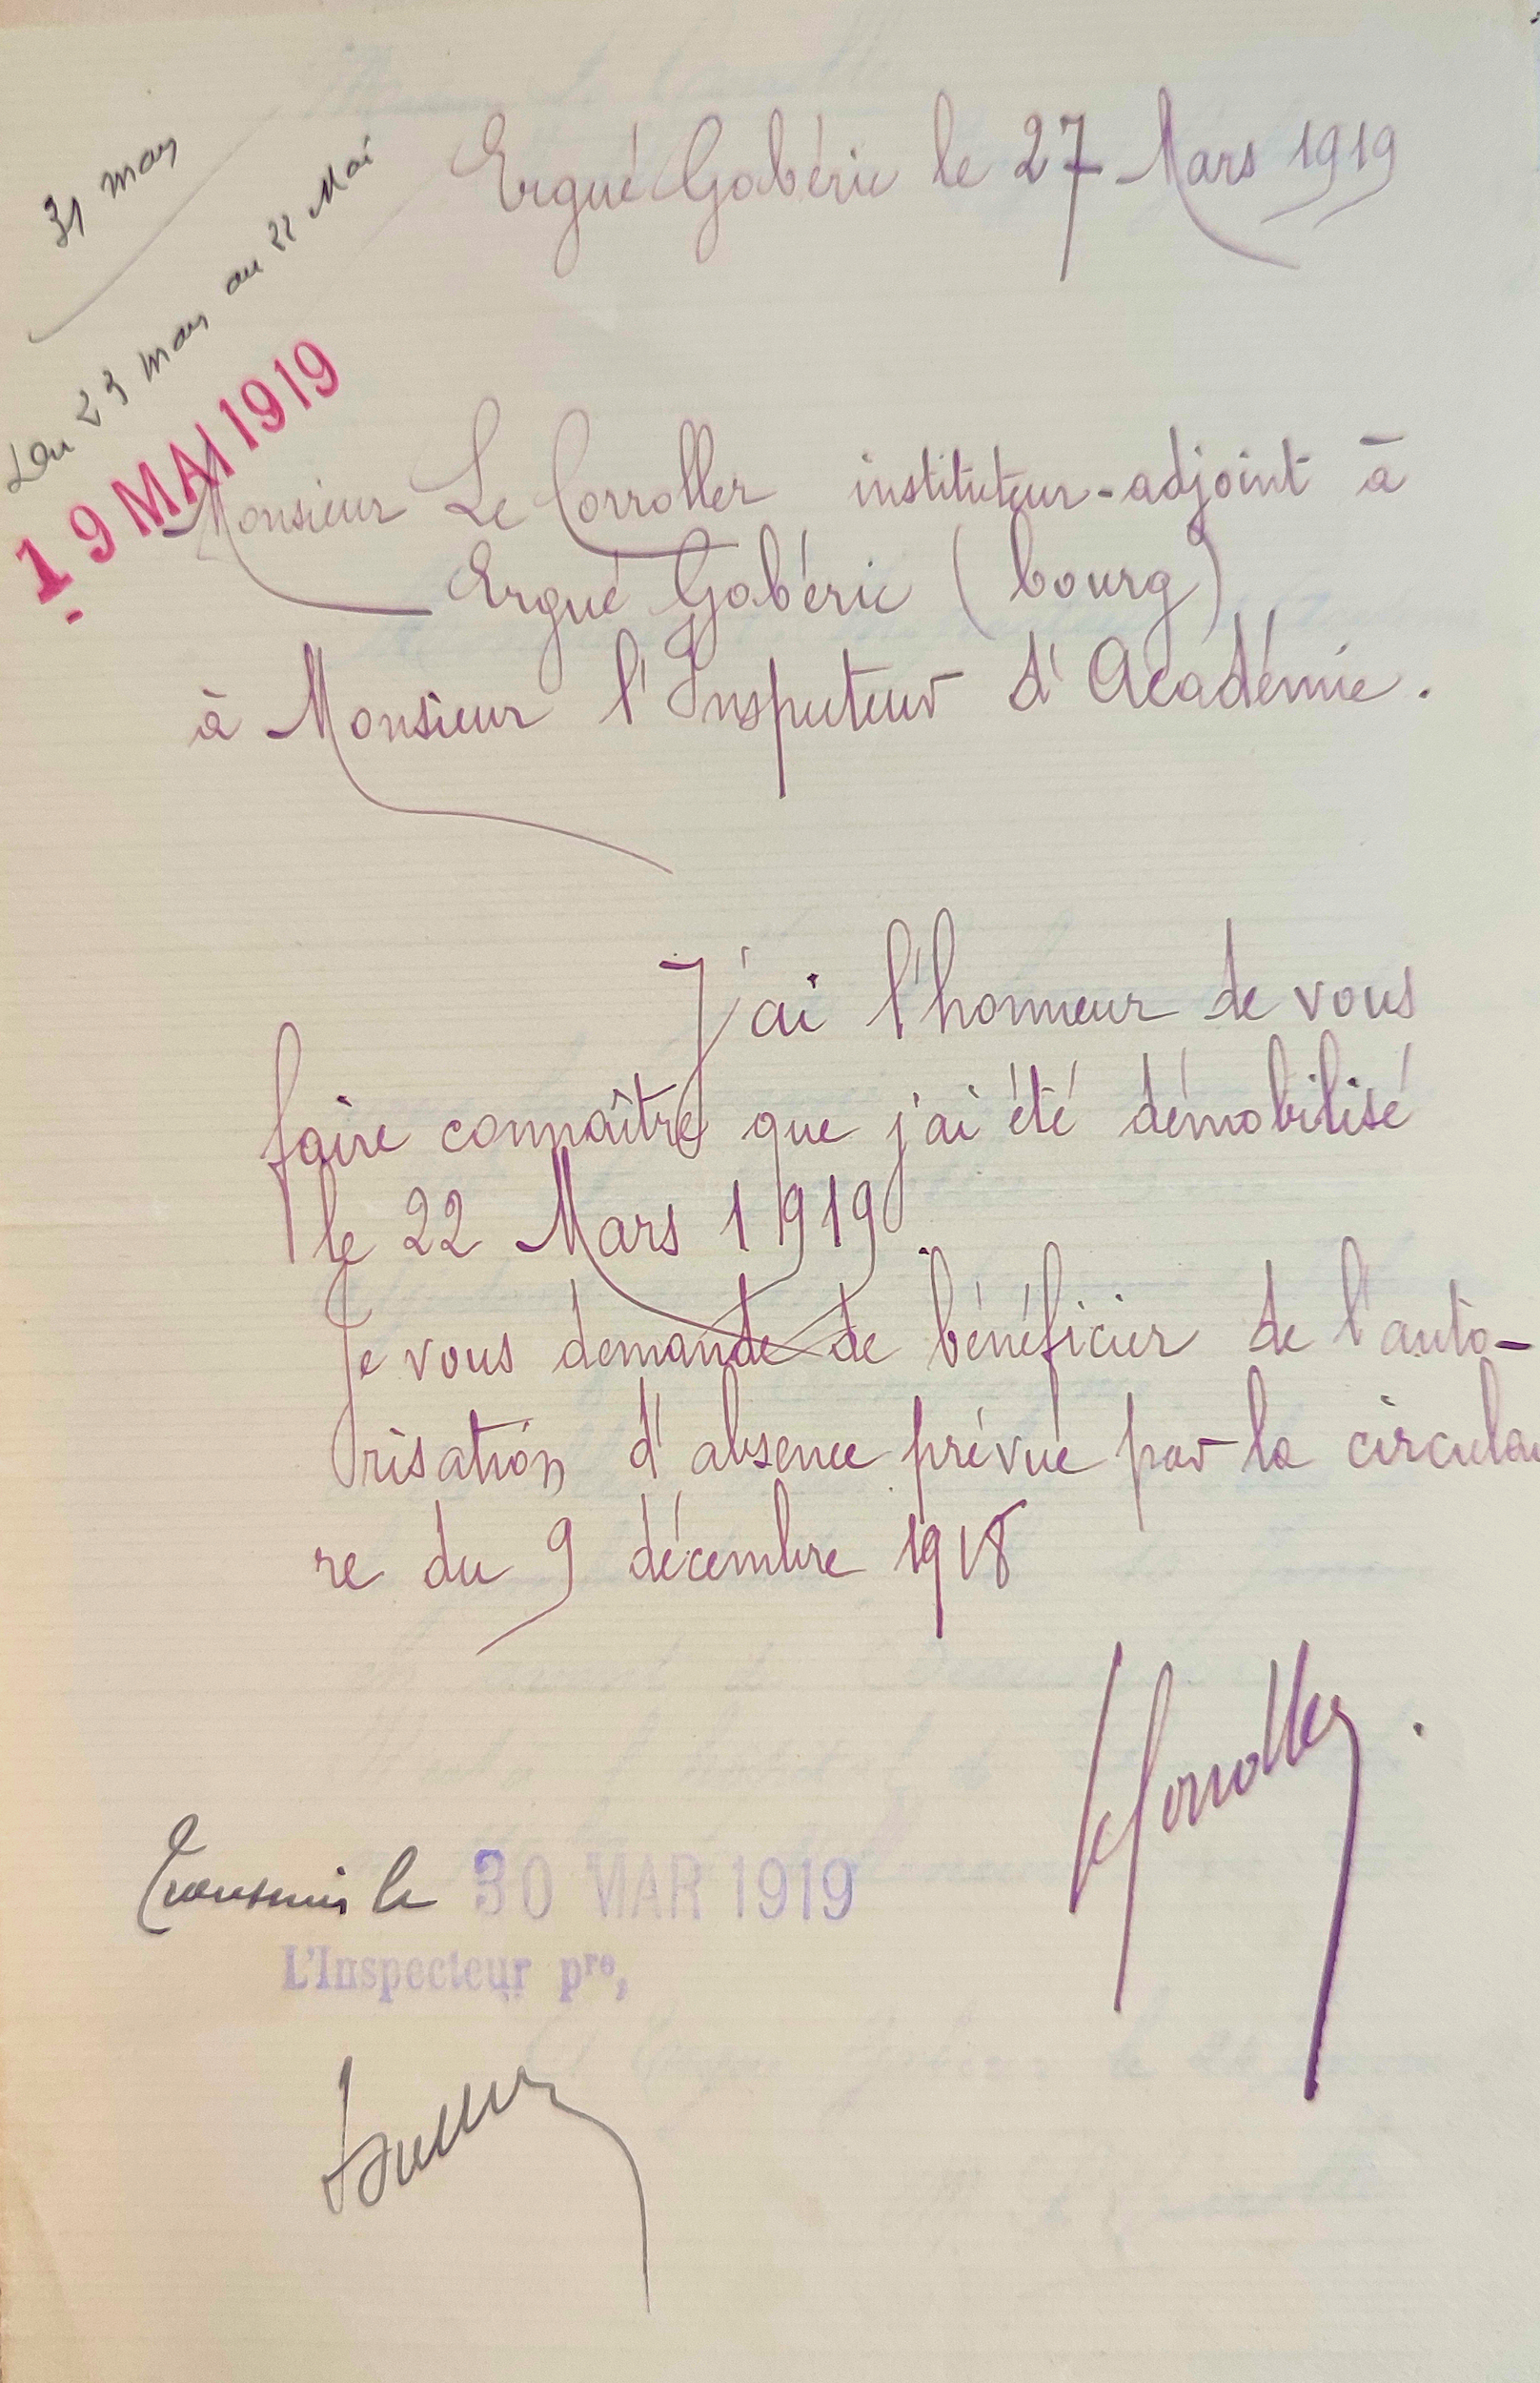 31 mars
Du 23 mars au 22 Mai
19 MAI 1919
Ergué Gabéric le 27 Mars 1919
Monsieur Le Corroller instituteur-adjoint à
Ergué Gabéric (bourg)
à Monsieur l'Inspecteur d'Académie.
J'ai l'honneur de vous
faire connaître que j'ai été démobilisé
le 22 Mars 1919.
Je vous demande de bénéficier de l'auto-
risation d'absence prévue par la circulai
re du 9 décembre 1918
Le Corroller
Transmis le 30 MAR 1919
L'Inspecteur pre,